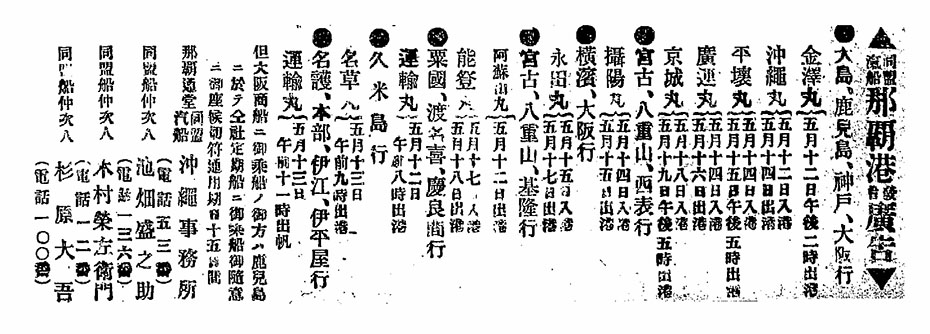 同盟汽船那覇港発着廣告
●大島、鹿兒島、神戸、大阪行
金澤丸 五月十二日午後二時出港
沖繩丸 五月十二日入港
五月十四日出港
平壤丸 五月十四日入港
五月十五日午後五時出港
廣運丸 五月十四日入港
五月十六日出港
京城丸 五月十九日午後五時出港
●宮古、八重山、西表行
攝陽丸 五月十四日入港
五月十五日出港
●横濱、大阪行
永田丸 五月十五日入港
五月十七日出港
●宮古、八重山、基隆行
阿蘇山丸 五月十二日出港
能登丸 五月十七日入港
五月十八日出港
●粟國、渡名喜、慶良間行
運輸丸 五月十二日
午前八時出港
●久米島行
名草丸 五月十三日
午前九時出港
●名護、本部、伊江、伊平屋行
運輸丸 五月十三日
午前十一時出帆
但大阪商船ニ御乘船ノ御方ハ鹿兒島
ニ於テ仝社定期船ニ御乘船御隨意
ニ御座候切符通用期日十五日間
那覇通堂 同盟汽船 沖繩事務所
(電話五三番)
同盟船仲次人 池畑盛之助
(電話一三六番)
同盟船仲次人 木村榮左衛門
(電話一二番)
同盟船仲次人 杉原大吾
(電話一〇〇番)